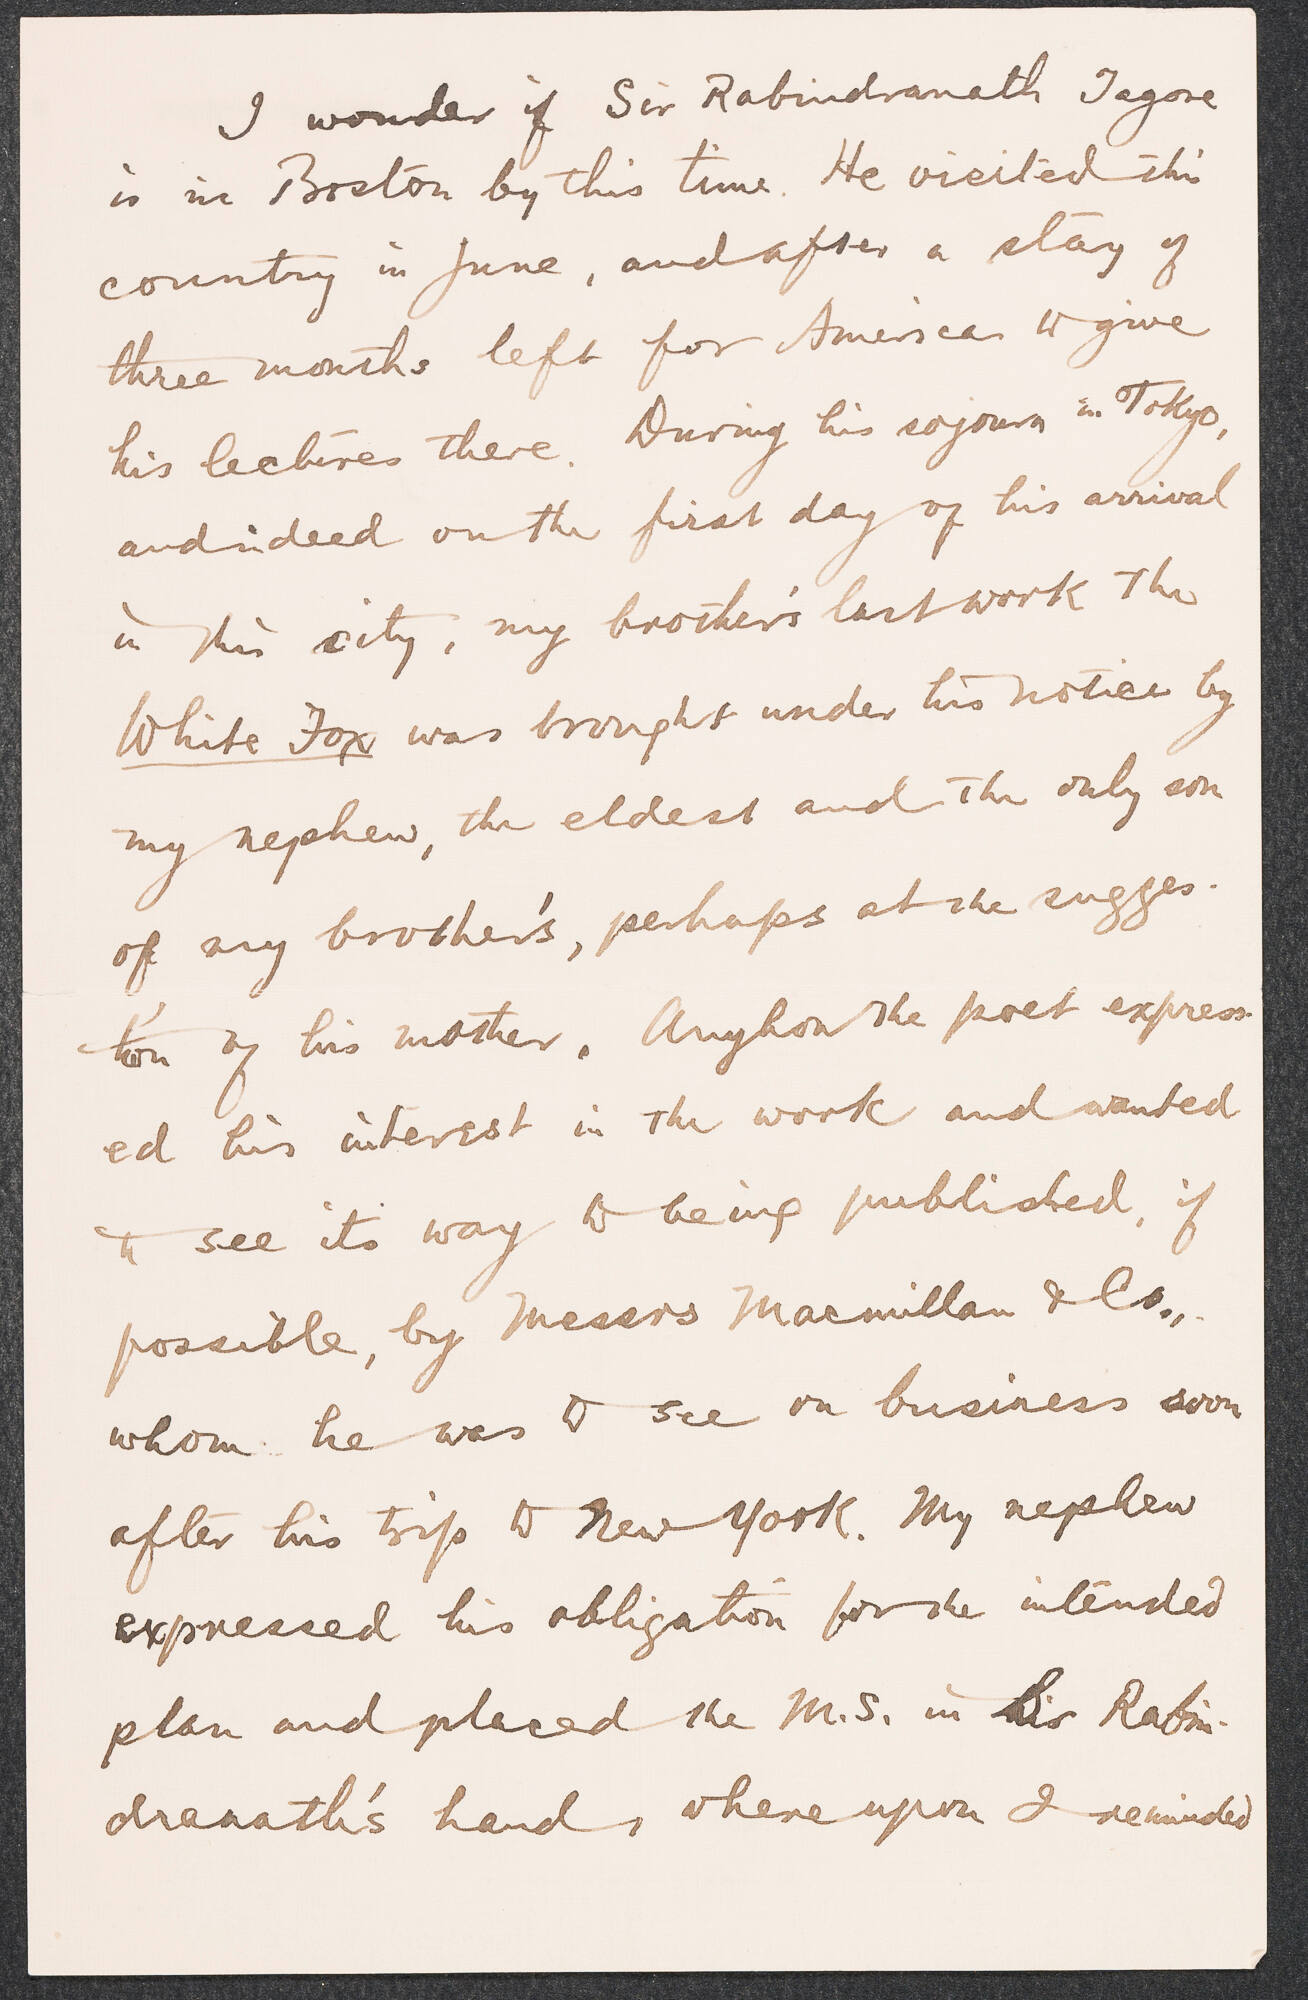 I wonder if Sir Rabindranath Tagore
is in Boston by this time. He visited this
country in June, and after a stay of
three months left for America to give
his lectures there. During his sojourn in Tokyo,
and indeed on the first day of his arrival
in this city, my brother's last work The
White Fox was brought under his notice by
my nephew, the eldest and the only son
of my brother's, perhaps at the sugges-
tion of his mother. Anyhow the poet express-
ed his interest in the work and wanted
to see its way to being published, if
possible, by Messrs Macmillan & Co.,
whom he was to see on business soon
after his trip to New York. My nephew
expressed his obligation for the intended
plan and placed the M.S. in Sir Rabin-
dranath's hand, whereupon I reminded